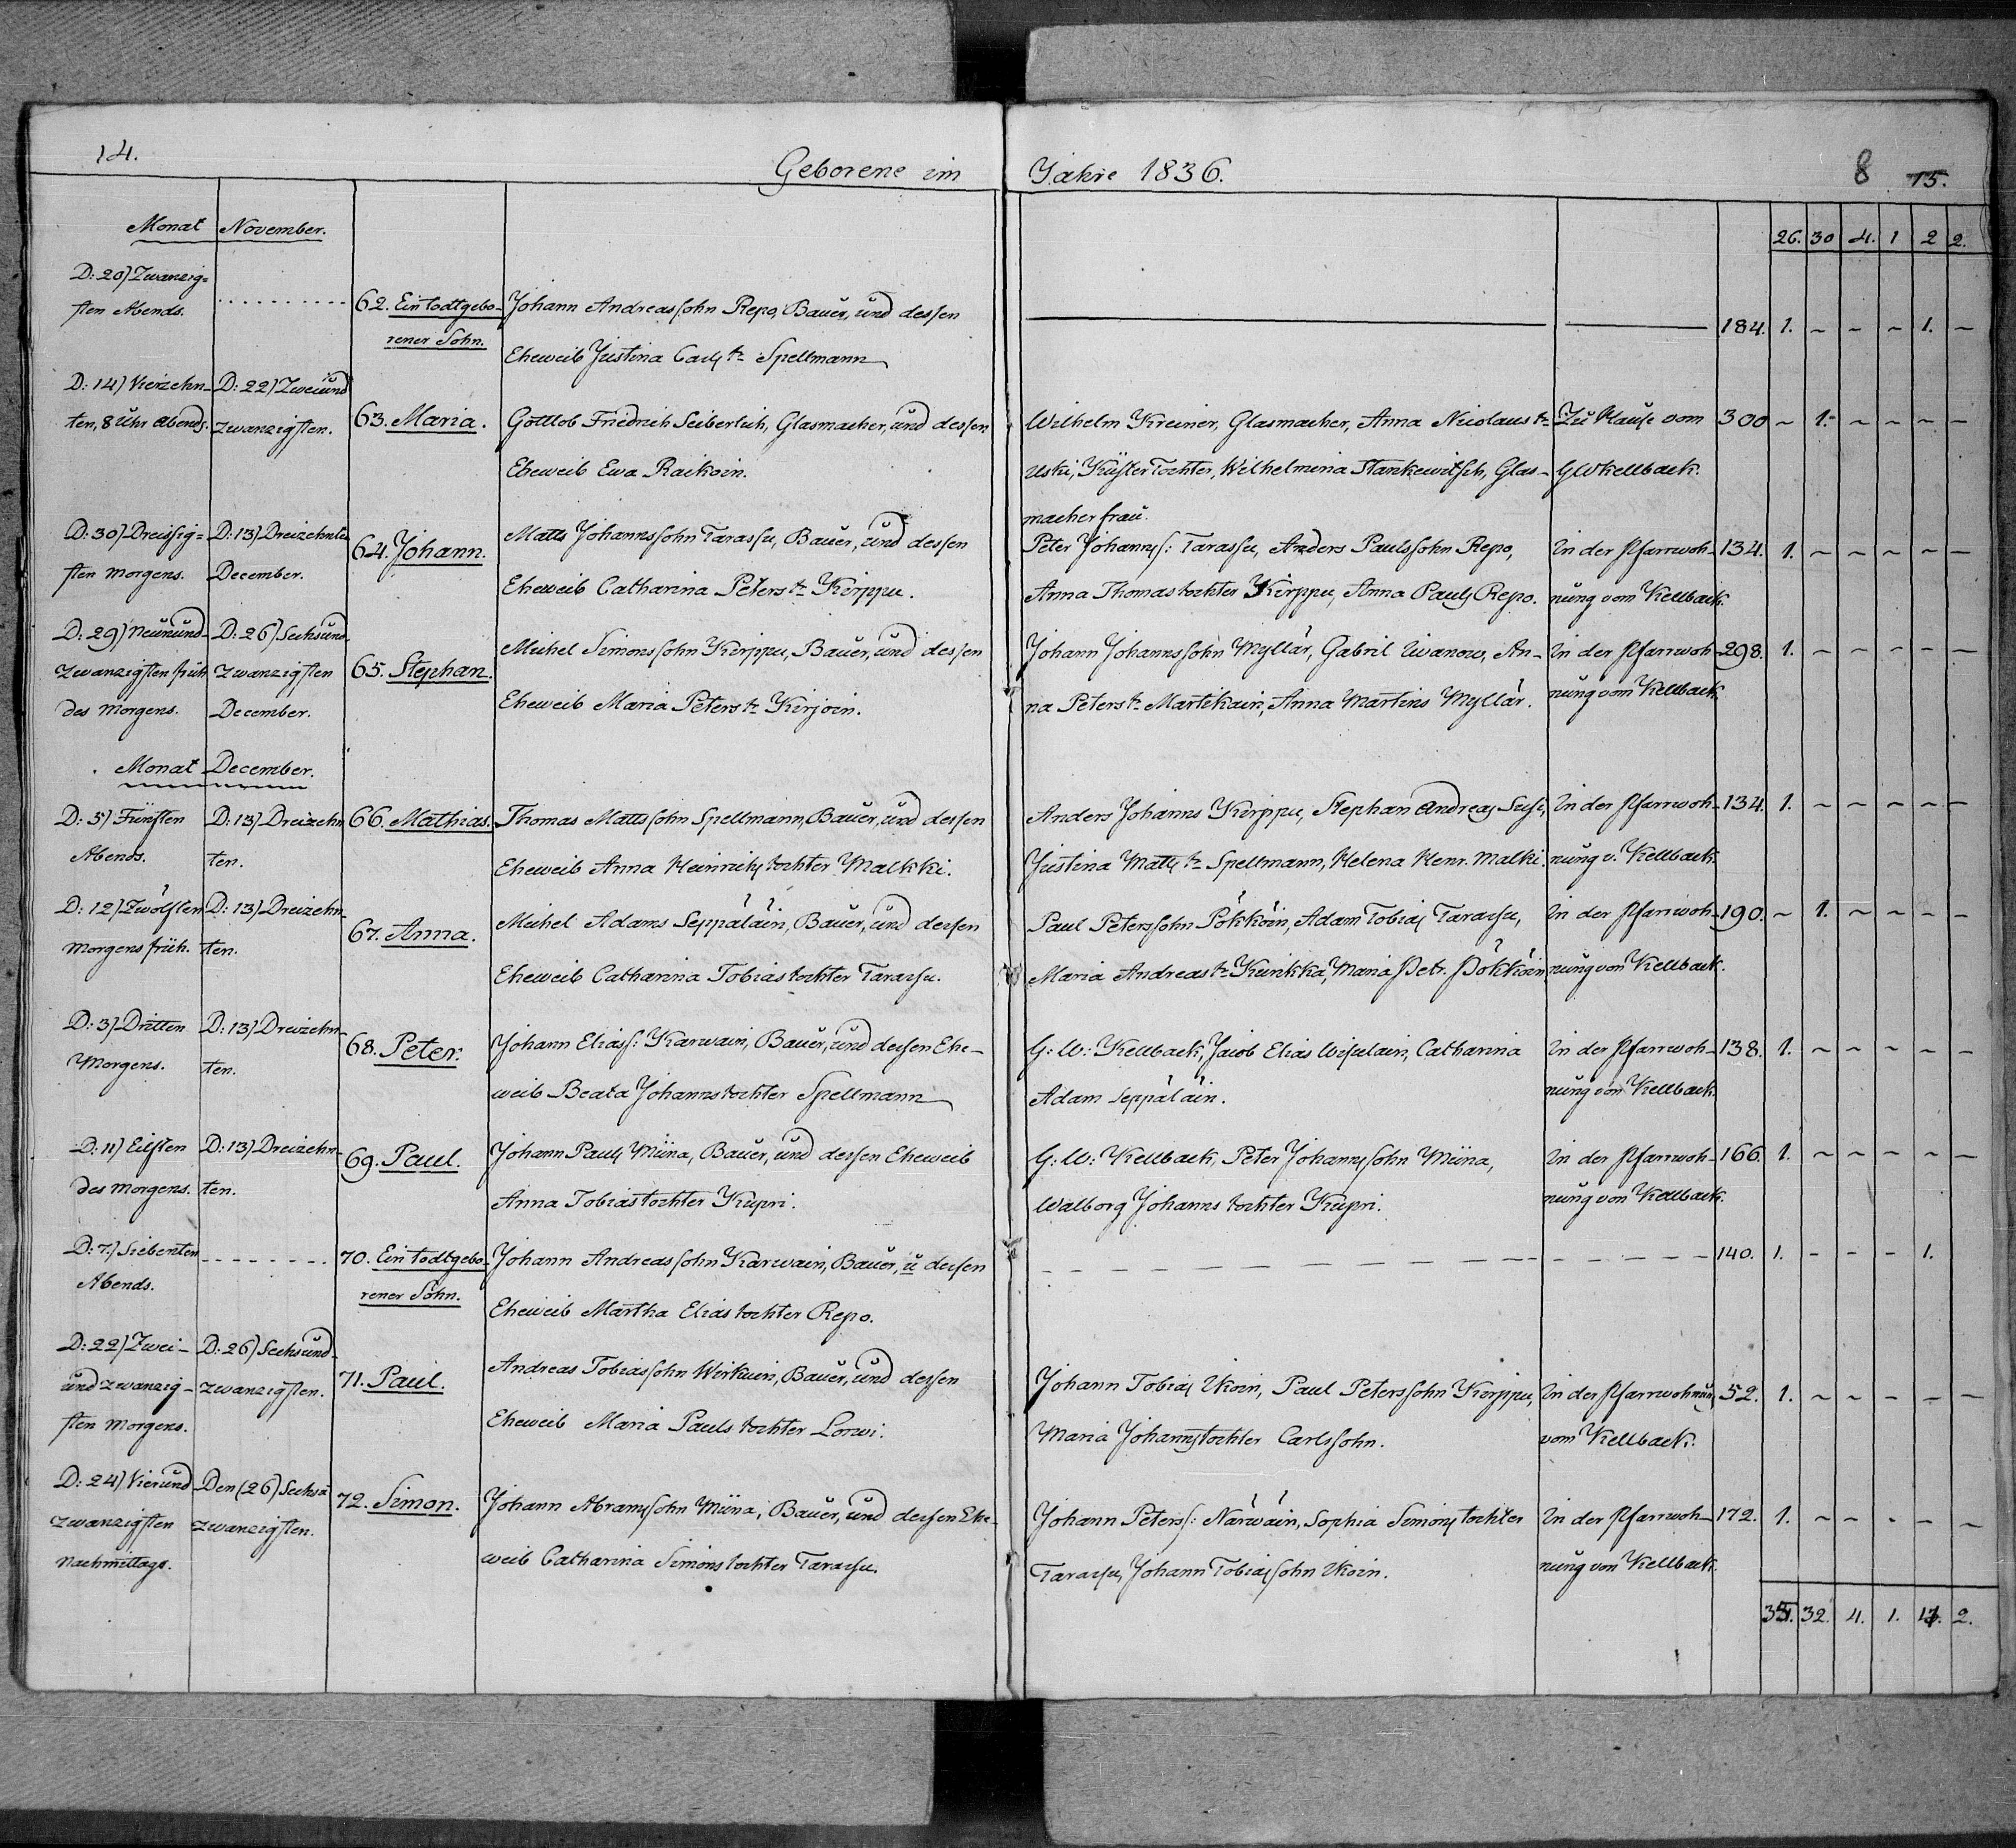 14.
Geborene im Jahre 1836.
8 15.
Monat November.
26. 30 4. 1 2 2.
D: 20) Zwanzig=
sten Abends.
62. Ein todtgebo-
rener Sohn.
Johann Andreassohn Repo, Bauer, und dessen
Eheweib Justina Carls tr Spellmann
184. 1. ~ ~ ~ 1. ~
D: 14) Vierzehn-
ten, 8 Uhr abends.
D: 22) Zweiund
zwanzigsten.
63. Maria.
Gottlob Friedrich Seiberlich, Glasmacher, und dessen
Eheweib Ewa Raikoin.
Wilhelm Kreiner, Glasmacher, Anna Nicolaus tr
Uski, Küster Tochter, Wilhelmina Stankewitsch, Glas-
macher frau.
Zu Hause vom
G W Kellback.
300 ~ 1. ~ ~ ~ ~
D: 30) Dreissig=
sten Morgens.
D: 13) Dreizehnten
December.
64. Johann.
Matts Johannssohn Tarassu, Bauer, und dessen
Eheweib Catharina Peters tr Kirppu.
Peter Johanns s: Tarassu, Anders Paulssohn Repo,
Anna Thomastochter Kirppu, Anna Pauls Repo.
In der Pfarrwoh-
nung vom Kellback.
134. 1. ~ ~ ~ ~ ~
D: 29) Neunund-
zwanzigsten früh
des Morgens.
D: 26) Sechsund-
zwanzigsten
December.
65. Stephan.
Michel Simonssohn Kirppu, Bauer, und dessen
Eheweib Maria Peters tr Kirjoin.
Johann Johannssohn Myllär, Gabril Iwanow, An-
na Peters tr Martikain, Anna Martins Myllär.
In der Pfarrwoh-
nung vom Kellback.
298. 1. ~ ~ ~ ~ ~
Monat December.
D: 5) Fünften
Abends.
D: 13) Dreizehn
ten.
66. Mathias.
Thomas Mattssohn Spellmann, Bauer, und dessen
Eheweib Anna Heinrichs tochter Malkki.
Anders Johanns Kirppu, Stephan Andreas Susi,
Justina Matts tr Spellmann, Helena Henr. Malki.
In der Pfarrwoh-
nung v. Kellback.
134. 1. ~ ~ ~ ~ ~
D: 12) Zwölften
Morgens früh.
D: 13) Dreizehn-
ten.
67. Anna.
Michel Adams Seppäläin, Bauer, und dessen
Eheweib Catharina Tobiastochter Tarassu.
Paul Peterssohn Pökköin, Adam Tobias Tarassu,
Maria Andreas tr Kurikka, Maria Petr. Pökköin
In der Pfarrwoh-
nung von Kellback.
190. ~ 1. ~ ~ ~ ~
D: 3) Dritten
Morgens.
D: 13) Dreizehn-
ten.
68. Peter.
Johann Elias s: Karwain, Bauer, und dessen Ehe-
weib Beata Johannstochter Spellmann
G: W: Kellback, Jacob Elias Wisulain, Catharina
Adam Seppäläin.
In der Pfarrwoh-
nung von Kellback.
138. 1. ~ ~ ~ ~ ~
D: 11) Eilften
des Morgens.
D: 13) Dreizehn-
ten.
69. Paul.
Johann Pauls Miina, Bauer, und dessen Eheweib
Anna Tobiastochter Kupri.
G: W: Kellback, Peter Johannssohn Miina,
Walborg Johanns tochter Kupri.
In der Pfarrwoh-
nung von Kellback.
166. 1. ~ ~ ~ ~ ~
D: 7.) Siebenten
Abends.
70. Ein todtgebo-
rener Sohn.
Johann Andreassohn Karwain, Bauer, u dessen
Eheweib Martha Eliastochter Repo.
140. 1. - - - 1.
D: 22) Zwei-
und zwanzig-
sten Morgens.
D: 26) Sechsund-
zwanzigsten.
71. Paul.
Andreas Tobiassohn Wirkuin, Bauer, und dessen
Eheweib Maria Pauls tochter Lorwi.
Johann Tobias Ikoin, Paul Peterssohn Kirppu,
Maria Johannstochter Carlssohn.
In der Pfarrwohnung
vom Kellback.
52. 1. ~ ~ ~ ~ ~
D: 24) Vierund
zwanzigsten
Nachmittags.
Den (26) Sechsu
zwanzigsten.
72. Simon.
Johann Abramssohn Miina, Bauer, und dessen Ehe-
weib Catharina Simonstochter Tarassu.
Johann Peters s: Närwäin, Sophia Simons tochter
Tarassu, Johann Tobiassohn Ikoin.
In der Pfarrwoh-
nung von Kellback.
172. 1. ~ ~ - ~ ~
32. 4. 1. 2.